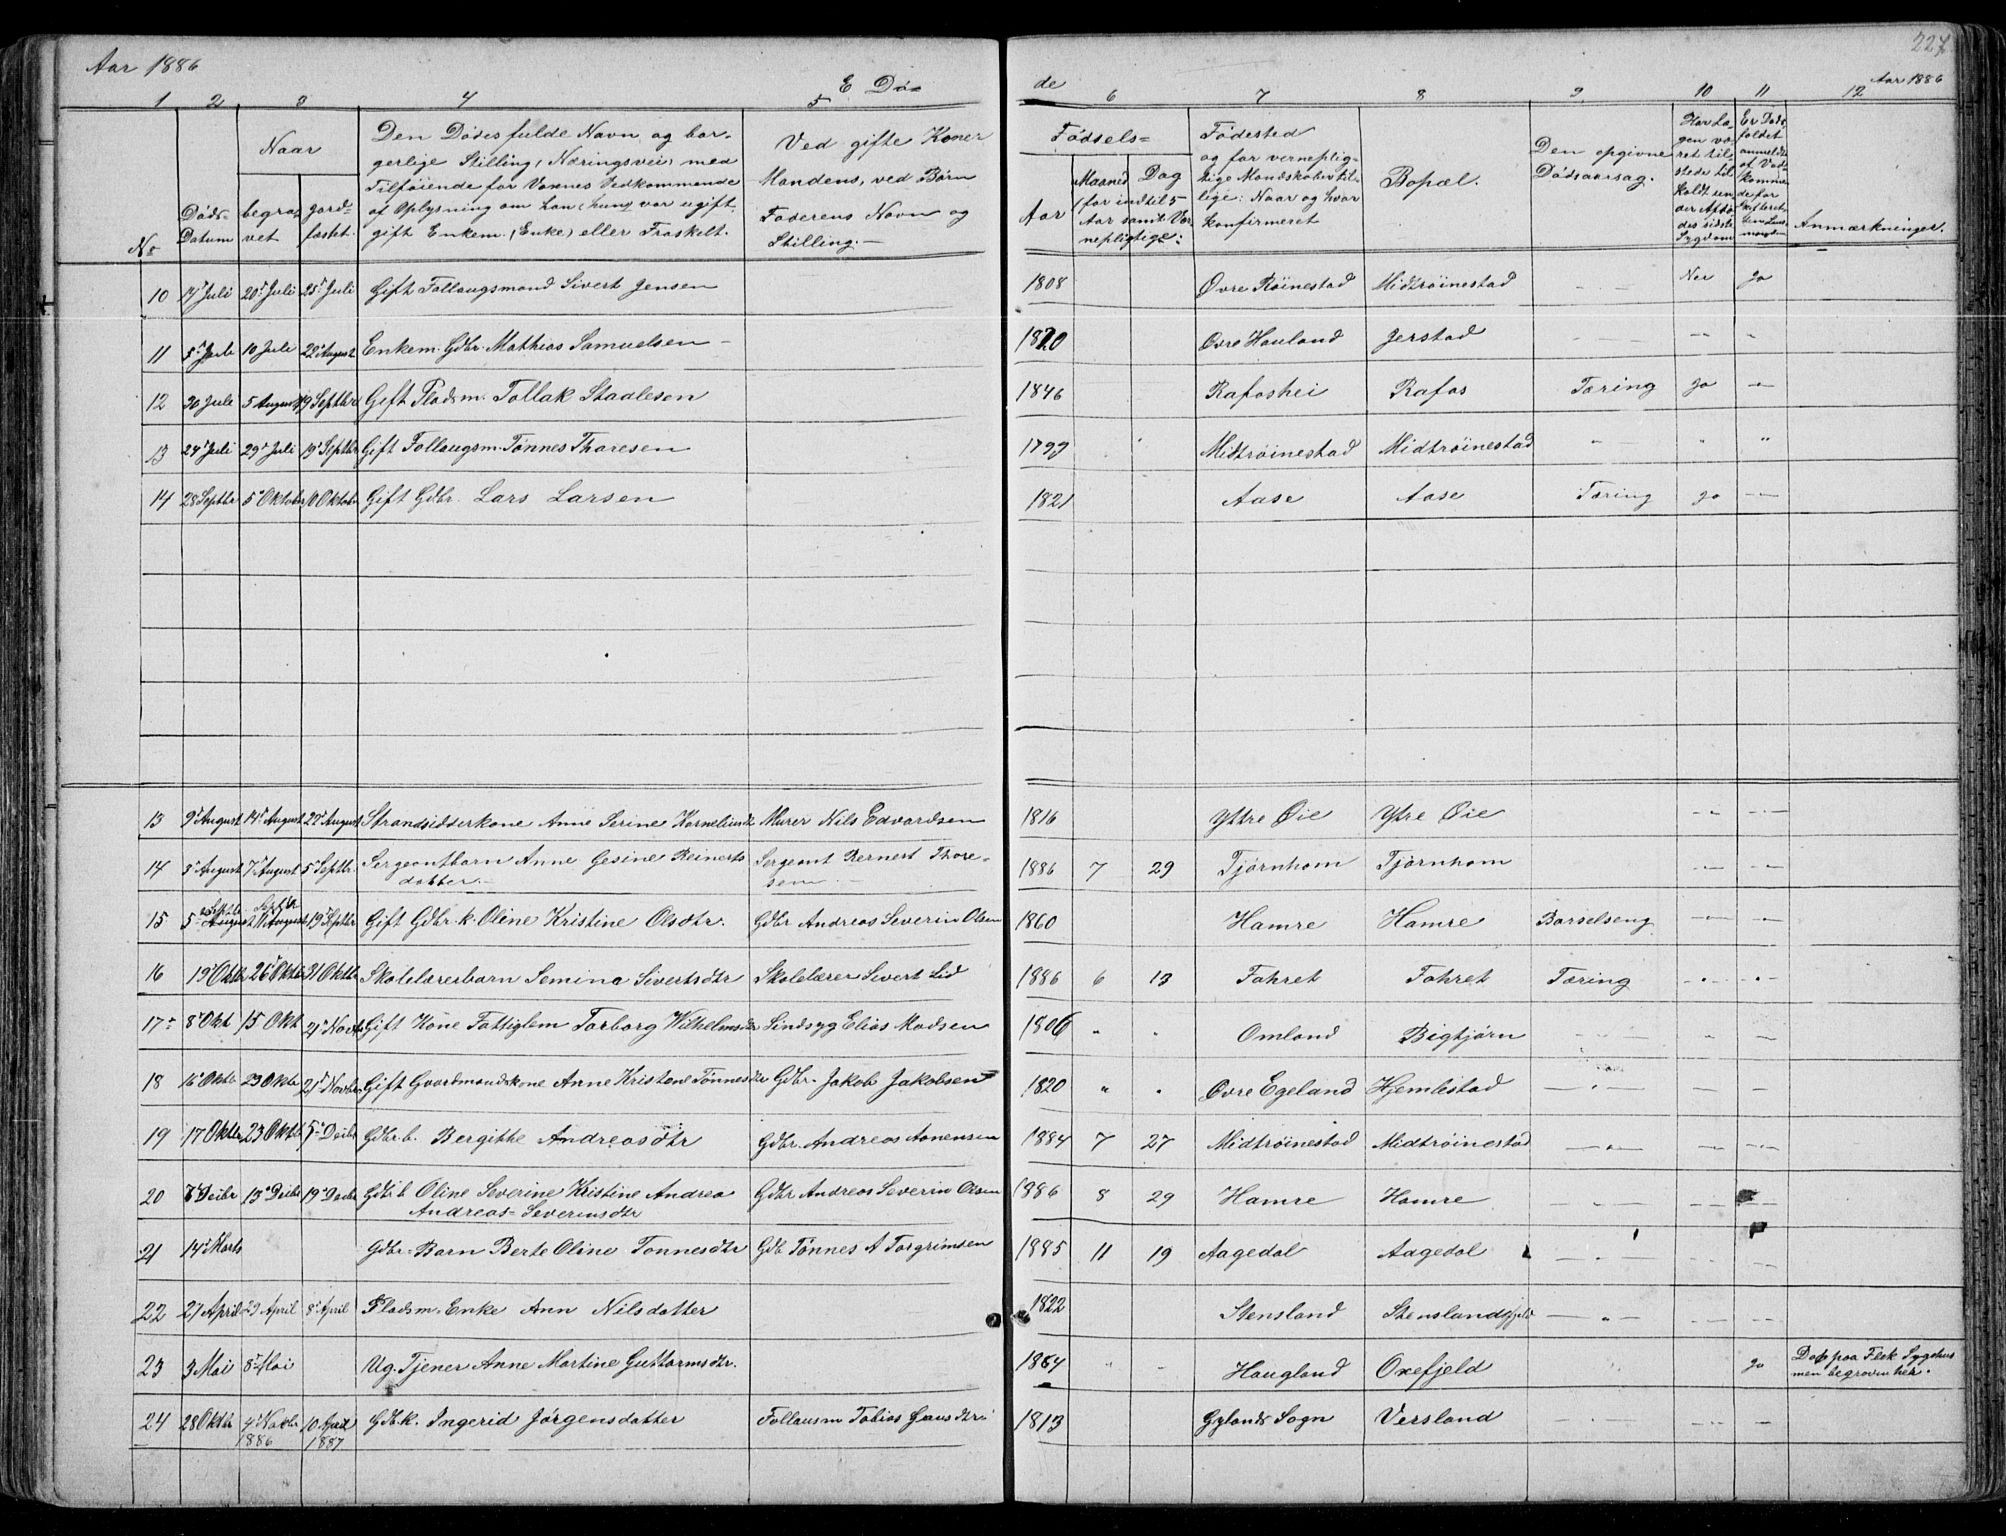 Aar 1886
E Dø=
de
227
Aar 1886
1 2 3 4 5 6 7 8 9 10 11 12
No
Døds-
Datum
Naar
begra-
vet
jord-
fæstet.
Den Dødes fulde Navn og bor-
gerlige Stilling, (Næringsvei) med
Tilføiende for Voxnes Vedkommende
af Oplysning om han (hun) var ugift,
gift Enkem. (Enke) eller Fraskilt.
Ved gifte Koner
Mandens, ved Børn
Faderens Navn og
Stilling.
Fødsels=
Aar
Maaned
Dag
(for indtil 5
Aar samt Vær-
nepligtige.
Fødested
og for vernepligt-
lige: Naar og hvor
konfirmeret
Bopæl.
Den opgivne
Dødsaarsag.
Har Læ-
gen væ-
ret til-
Er Døds-
faldet
anmeldt
Anmærkninger.
10 14 Juli 20 Juli 25 Juli Gift Follaugsmand Sivert Jensen 1808 Øvre Røinestad Midtrøinestad Nei Ja
11 5 Juli 10 Juli 22 August Enkem. Gdbr. Mathias Samuelsen 1820 Øvre Hauland Jerstad
12 30 Juli 5 August 19 Septbr Gift Pladsm. Tollak Staalesen 1846 Rafoshei Rafos Tæring Ja
13 24 Juli 29 Juli 19 Septbr Gift Follaugsm. Tønnes Thoresen 1799 Midtrøinestad Midtrøinestad
14 28 Septbr 5 Oktober 10 Oktobr Gift Gdbr. Lars Larsen 1821 Aase Aase Tæring Ja
13 9 August 14 August 22 August Strandsidderkone Anne Serine Korneliusdtr Murer Nils Edvardsen 1816 Yttre Øie Ytre Øie
14 3 August 7 August 5 Septbr. Sergeantbarn Anne Gesine Reinerts Sergeant Rernert Thore- 1886 7 29 Tjørnhom Tjørnhom
datter. sen
Septbr Septbr
15 5 August August 19 Septbr Gift Gdbr. k. Oline Kristine Olsdtr. Gdbr Andreas Severin Olsen 1860 Hamre Hamre Barselseng
16 19 Oktbr 26 Oktbr 31 Oktbr Skolelærerbarn Semina Sivertsdtr Skolelærer Sivert Lid 1886 6 13 Fahret Fahret Tæring
17 8 Okt 15 Okt 21 Novbr Gift Kone Fattiglem Torborg Wilhelmsdtr Sindsyg Elias Madsen 1806 " " Omland Bigtjørn
18 16 Oktbr 23 Oktbr 21 Novbr Gift Gaardmandskone Anne Kristine Tønnesdtr Gdbr. Jakob Jakobsen 1820 " " Øvre Egeland Hjemlestad
19 17 Oktbr 23 Oktbr 5 Decbr Gdbr. b. Bergithe Andreasdtr Gdbr. Andreas Aanensen 1884 7 27 Midtrøinestad Midtrøinestad
20 Decbr 13 Decbr 19 Decbr Gdbr b Oline Severine Kristine Andrea Gdbr Andreas Severin Olsen 1886 8 29 Hamre Hamre
Andreas=Severinsdtr
21 14 Marts Gdbr. Barn Berte Oline Tønnesdtr Gdb Tønnes A Torgrimsen 1885 11 19 Aagedal Aagedal
22 27 April 29 April 8 April Pladsm. Enke Ann Nilsdatter 1822 Stensland Stenslandsfjeld
23 3 Mai 8 Mai Ug. Tjener Anne Martine Guttormsdtr. 1864 Haugland Oxefjeld Ja Død paa Flek Sygehus
men begraven her.
24 28 Oktbr 4 Novbr 10 April Gdb. k. Ingerid Jørgensdatter Follausm Tobias 1813 Gylands Sogn Versland
1886 1887